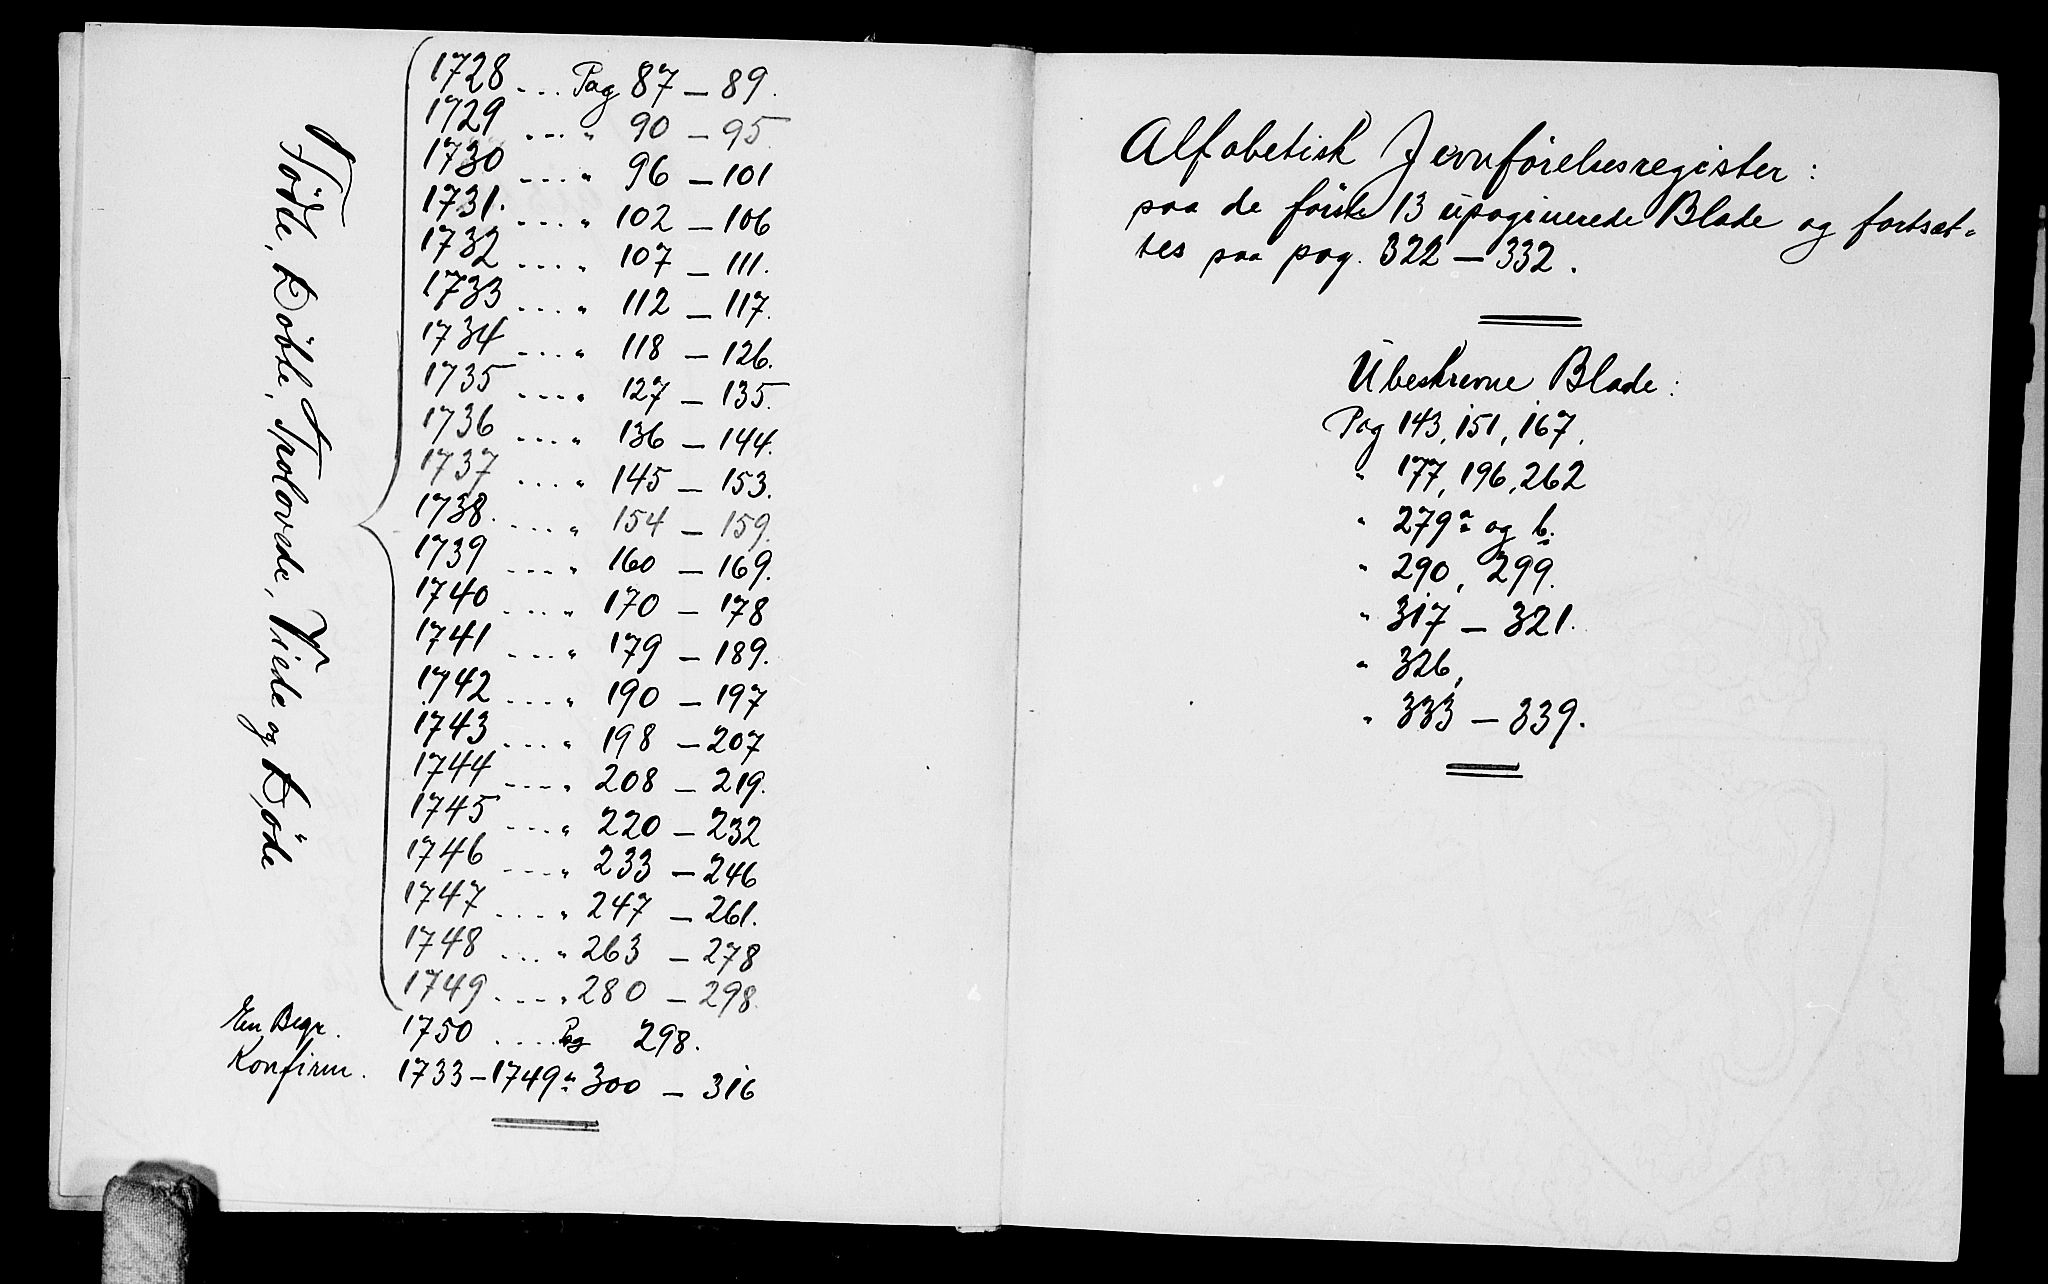 Födde, Döbte, Trolovede, Viede og Döde
1728 ... Pag 87 — 89.
1729 ... " 90 — 95
1730 ... " 96 — 101
1731. ... " 102 — 106
1732 .... " 107 — 111.
1733 .... " 112 — 117.
1734 .... " 118 — 126.
1735 .... " 127 — 135.
1736 .... " 136 — 144.
1737 .... " 145 — 153.
1738. .... " 154 — 159.
1739 .... " 160 — 169.
1740 .... " 170 — 178
1741 .... " 179 — 189.
1742 .... " 190 — 197
1743 .... " 198 — 207
1744 .... " 208 — 219.
1745 .... " 220 — 232
1746 .... " 233 — 246
1747 .... " 247 — 261.
1748 .... " 263 — 278
1749 .... " 280 — 298.
En Begr. 1750 ..... Pag 298.
Konfirm. 1733 — 1749 " 300 — 316
Alfabetisk Jevnförelsesregister :
paa de förste 13 upaginerede Blade og fortsæt-
tes paa pag. 322 — 332.
Ubeskrevne Blade :
Pag 143, 151, 167.
" 177, 196, 262
" 279 a og b.
" 290, 299.
" 317 — 321.
" 326,
" 333 — 339.